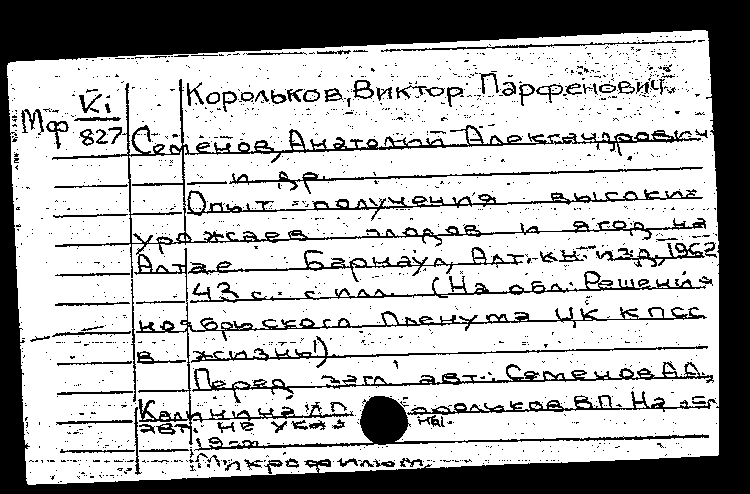 Корольков, Виктор Парфенович.
Мф Ki
827
Семенов, Анатолий Александрович
и др.
Опыт получения высоких
урожаев плодов и ягод на
Алтае. Барнаул, Алт. кн. изд, 1962
43 с. с илл. (На обл.: Решения
ноябрьского Пленума ЦК КПСС
в жизнь!)
Перед загл. авт.: Семенов А.А.,
Калинина А.П. Корольков В.П. На
авт. не указ ны.
Микрофильм.